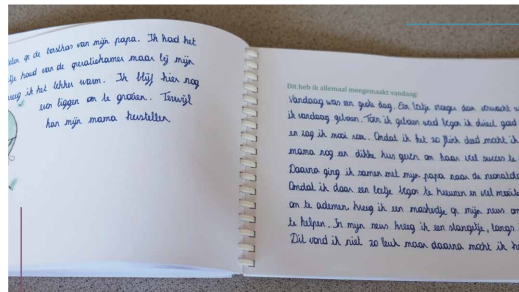 op de borstkas van mijn papa. Ik had het
koud van de operatiekamer maar bij mijn
kreeg ik het lekker warm. Ik blijf hier nog
even liggen om te groeien. Terwijl
kan mijn mama herstellen
Dit heb ik allemaal meegemaakt vandaag:
Vandaag was een grote dag. Een beetje vroeger dan verwacht w
ik vandaag geboren. Toen ik geboren werd begon ik direct goed
en zag ik mooi roze. Omdat ik het zo flink deed mocht ik
mama nog een dikke kus geven om haar veel succes te
Daarna ging ik samen met mijn papa naar de neonatale
Omdat ik daar een beetje begon te kreunen en veel moeite
om te ademen kreeg ik een maskertje op mijn neus om
te helpen. In mijn neus kreeg ik een slangetje, langs
Dit vond ik niet zo leuk maar daarna mocht ik h